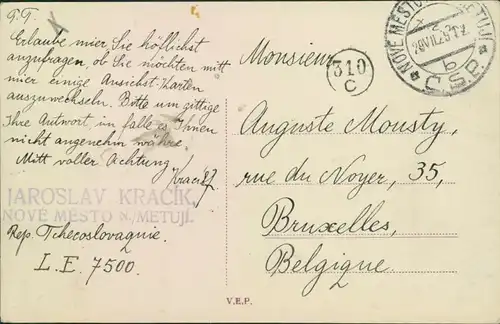 P.T.
Erlaube mier, Sie höflichst
anzufragen, ob Sie möchten mitt
mier einige Ansichst-Karten
auszuwechseln. Bitte um zittige
Ihre Antwort in falle es Ihnen
nicht angenehm währe
Mitt voller Achtung!
JAROSLAV KRAČÍK,
NOVÉ MĚSTO N./METUJÍ.
Rep. Tchecoslovaquie.
L. E. 7500.
V.E.P.
NOVÉ MĚSTO METUJÍ
b
Č.S.P.
310
C
Monsieur
Auguste Mousty,
rue du Noyer, 35,
Bruxelles,
Belgique.